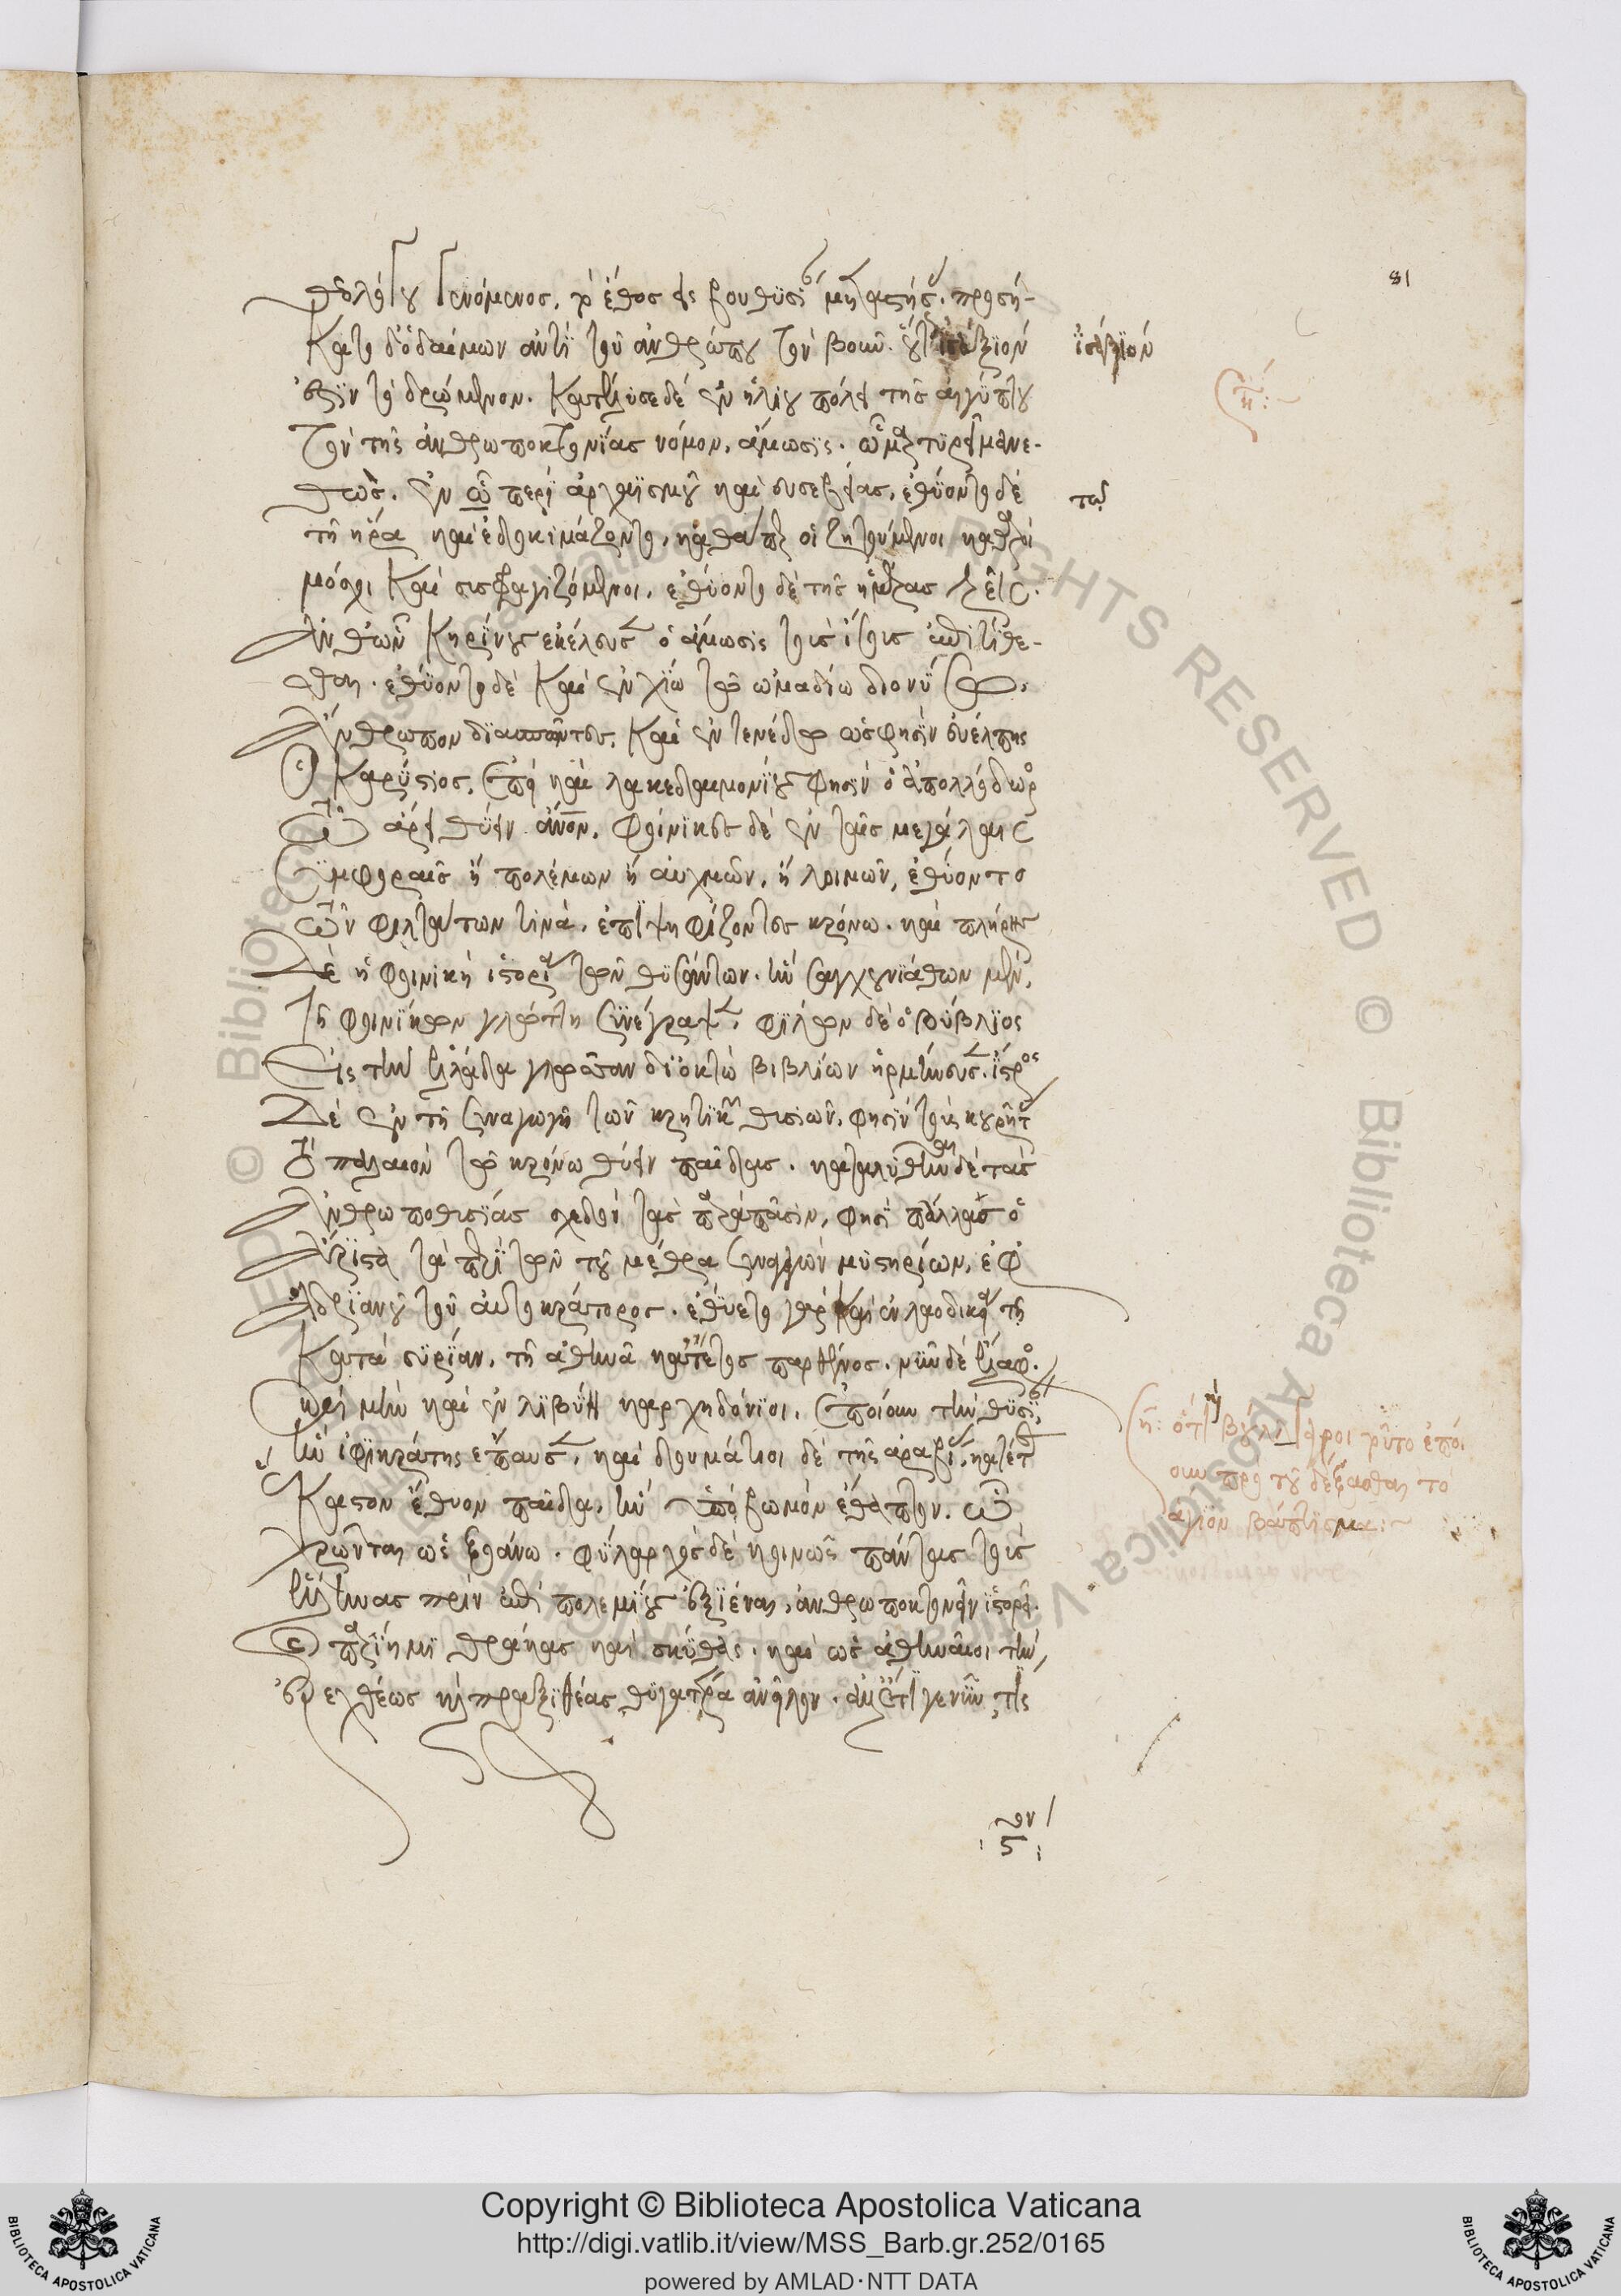 θεολόγου γενόμενος, τὸ ἔθος εἰς βουθυσίαν μεταστήσας. προσή-
κατο δ' ὁ δαίμων ἀντὶ τοῦ ἀνθρώπου τὸν βοῦν. οὕτως ἰσάξιον
ἰσάξιον
ἐστὶν τὸ δρώμενον. κατέλυσε δὲ ἐν ἡλίου πόλει τῆς αἰγύπτου
τὸν τῆς ἀνθρωποκτονίας νόμον, ἄμωσις. ὡς μαρτυρεῖ μανε-
θῶς. ἐν ὧ περὶ ἀρχαϊσμοῦ καὶ εὐσεβείας, ἐθύοντο δὲ
τῶ
τῇ ἥρα καὶ ἐδοκιμάζοντο, καθάπερ οἱ ζητούμενοι καθαροὶ
μόσχοι καὶ συσφραγιζόμενοι. ἐθύοντο δὲ τῆς ἡμέρας τρεῖς.
Ἀνθ' ὧν κηρίνους ἐκέλευσεν ὁ ἄμωσις τοὺς ἴσους ἐπιτίθε-
σθαι. ἐθύοντο δὲ καὶ ἐν χίω τῶ ὠμαδίω διονύσω,
Ἄνθρωπον διασπῶντες. καὶ ἐν τενέδω ὥς φησὶν εὐέλπις
Ὁ καρύστιος, Ἐπεὶ καὶ λακεδαιμονίους φησὶν ὁ ἀπολλόδωρος
Τῶ ἄρει θύειν ἄνον. φοίνικες δὲ ἐν ταῖς μεγάλαις
Συμφοραῖς ἢ πολέμων ἢ αὐχμῶν, ἢ λοιμῶν, ἐθύοντο
Τῶν φιλτάτων τινὰ, ἐπιψηφίζοντες κρόνω. καὶ πλήρης
Δὲ ἡ φοινικὴ ἱστορία τῶν θυσάντων. ἣν σαγχουνιάθων μὲν,
Τῇ φοινίκων γλώττη συνέγραψεν, φίλων δὲ ὁ βύβλιος
Εἰς τὴν ἑλλάδα γλῶσσαν δι' ὀκτὼ βιβλίων ἡρμήνευσεν. ἴστρος
Δὲ ἐν τῇ συναγωγῇ τῶν κρητικῶν θυσιῶν, φησὶν τοὺς κουρῆτας
Τὸ παλαιὸν τῶ κρόνω θύειν παῖδας. καταλυθῆναι δὲ τὰς
Ἀνθρωποθυσίας σχεδὸν τὰς παρὰ πᾶσιν, φησὶ πάλλας ὁ
Ἄριστα τὰ περὶ τῶν τοῦ μίθρα συναγαγὼν μυστηρίων, ἐφ'
Ἀδριανοῦ τοῦ αὐτοκράτορος. ἐθύετο γὰρ καὶ ἐν λαοδικεία τῇ
Κατὰ συρίαν, τῇ ἀθηνᾶ κατ' ἔτος παρθένος. νῦν δὲ ἔλαφος.
καὶ μὴν καὶ ἐν λιβύη καρχηδόνιοι, Ἐποίουν τὴν θυσίαν,
ἣν ἰφικράτης ἔπαυσεν, καὶ δουμάτιοι δὲ τῆς ἀραβίας, κατ' ἔτος
Ἕκαστον ἔθυον παῖδα, ὃν ὑπὸ βωμὸν ἔθαπτον. ὧ
Χρῶνται ὡς ξοάνω. φύλαρχος δὲ κοινῶς πάντας τοὺς
ἕλληνας πρὶν ἐπὶ πολεμίους ἐξιέναι, ἀνθρωποκτονεῖν ἱστορεῖ.
Καὶ παρίημι θρᾶκας καὶ σκύθας. καὶ ὡς ἀθηναῖοι τὴν
ἐρεχθέως καὶ πραξιθέας θυγατέρα ἀνεῖλον. ἀλλ' ἔτι γενῦν τίς
ὅτι οἱ βούλγαροι τοῦτο ἐποί-
ουν πρὸ τοῦ δέξασθαι τὸ
ἅγιον βάπτισμα:~
81
Copyright © Biblioteca Apostolica Vaticana
http://digi.vatlib.it/view/MSS_Barb.gr.252/0165
powered by AMLAD·NTT DATA